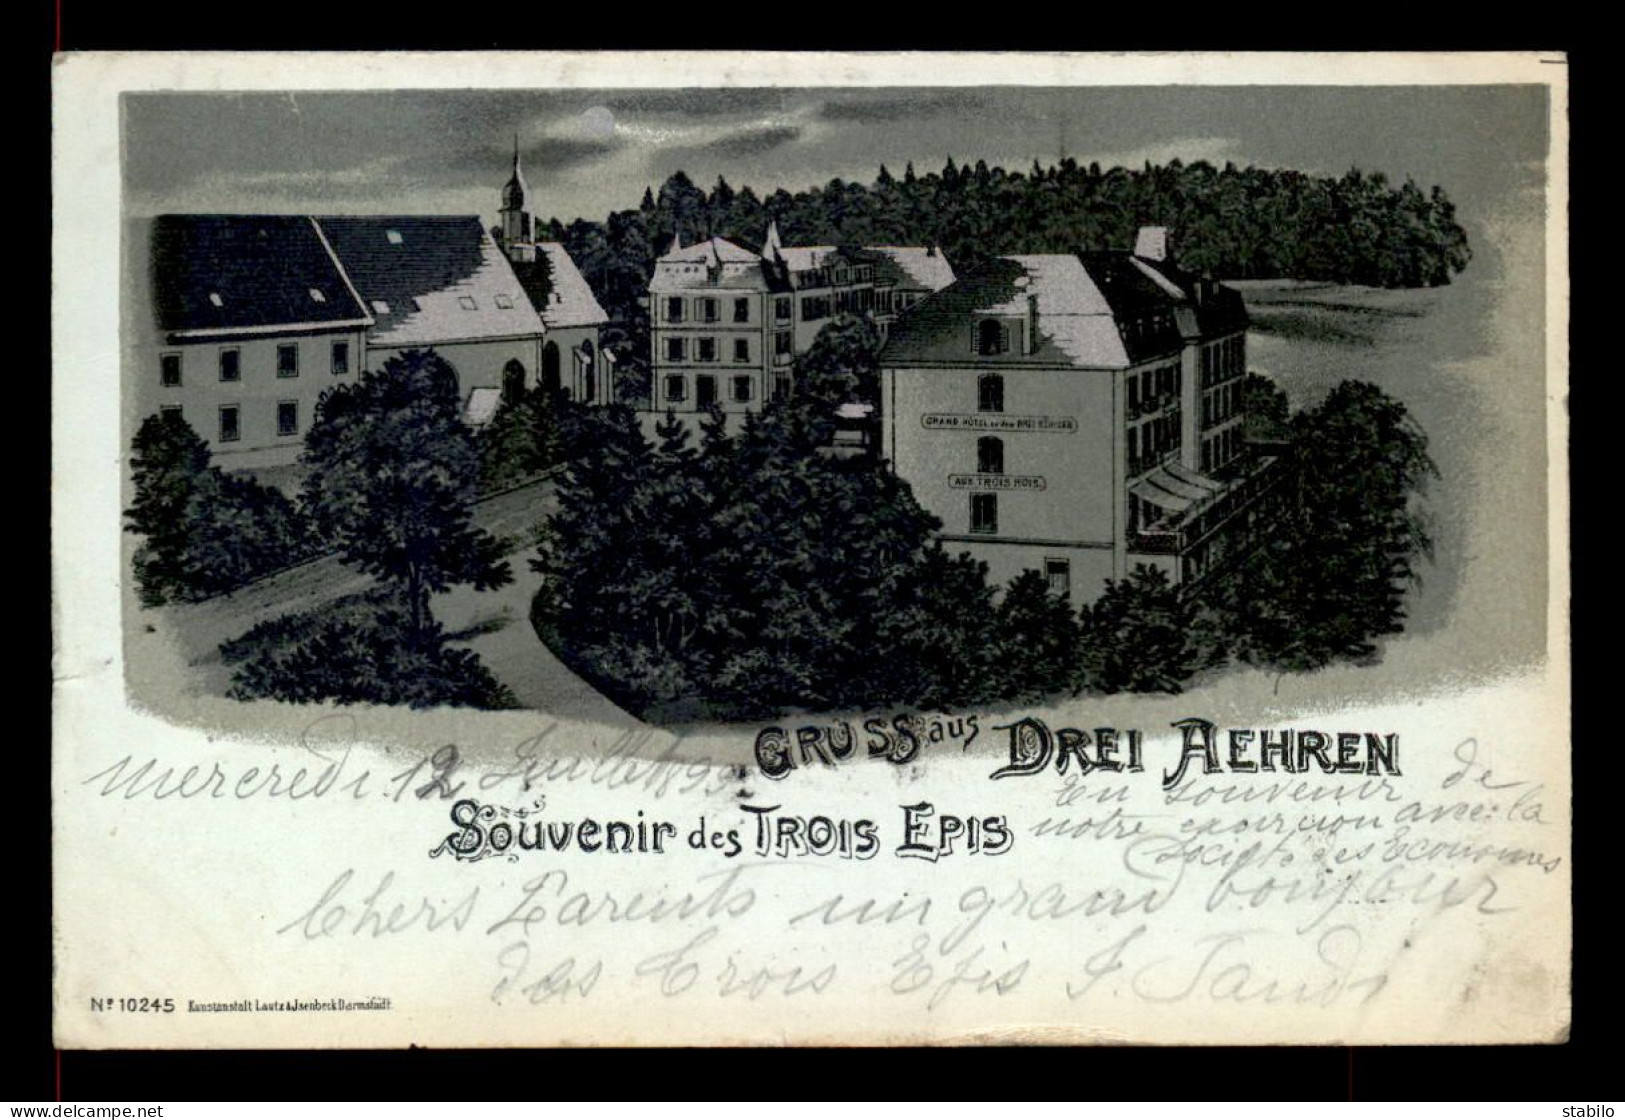 GRAND HÔTEL zu den DREI KÖNIGEN
AUX TROIS ROIS.
GRUSS aus DREI AEHREN
mercredi 12 Juillet 1899
SOUVENIR des TROIS EPIS
En souvenir de
notre excursion avec la
Société des Economes
Chers Parents un grand bonjour
des Trois Epis J.
Nº 10245 Kunstanstalt Lautz & Jsenbeck Darmstadt.
www.delcampe.net
stabilo